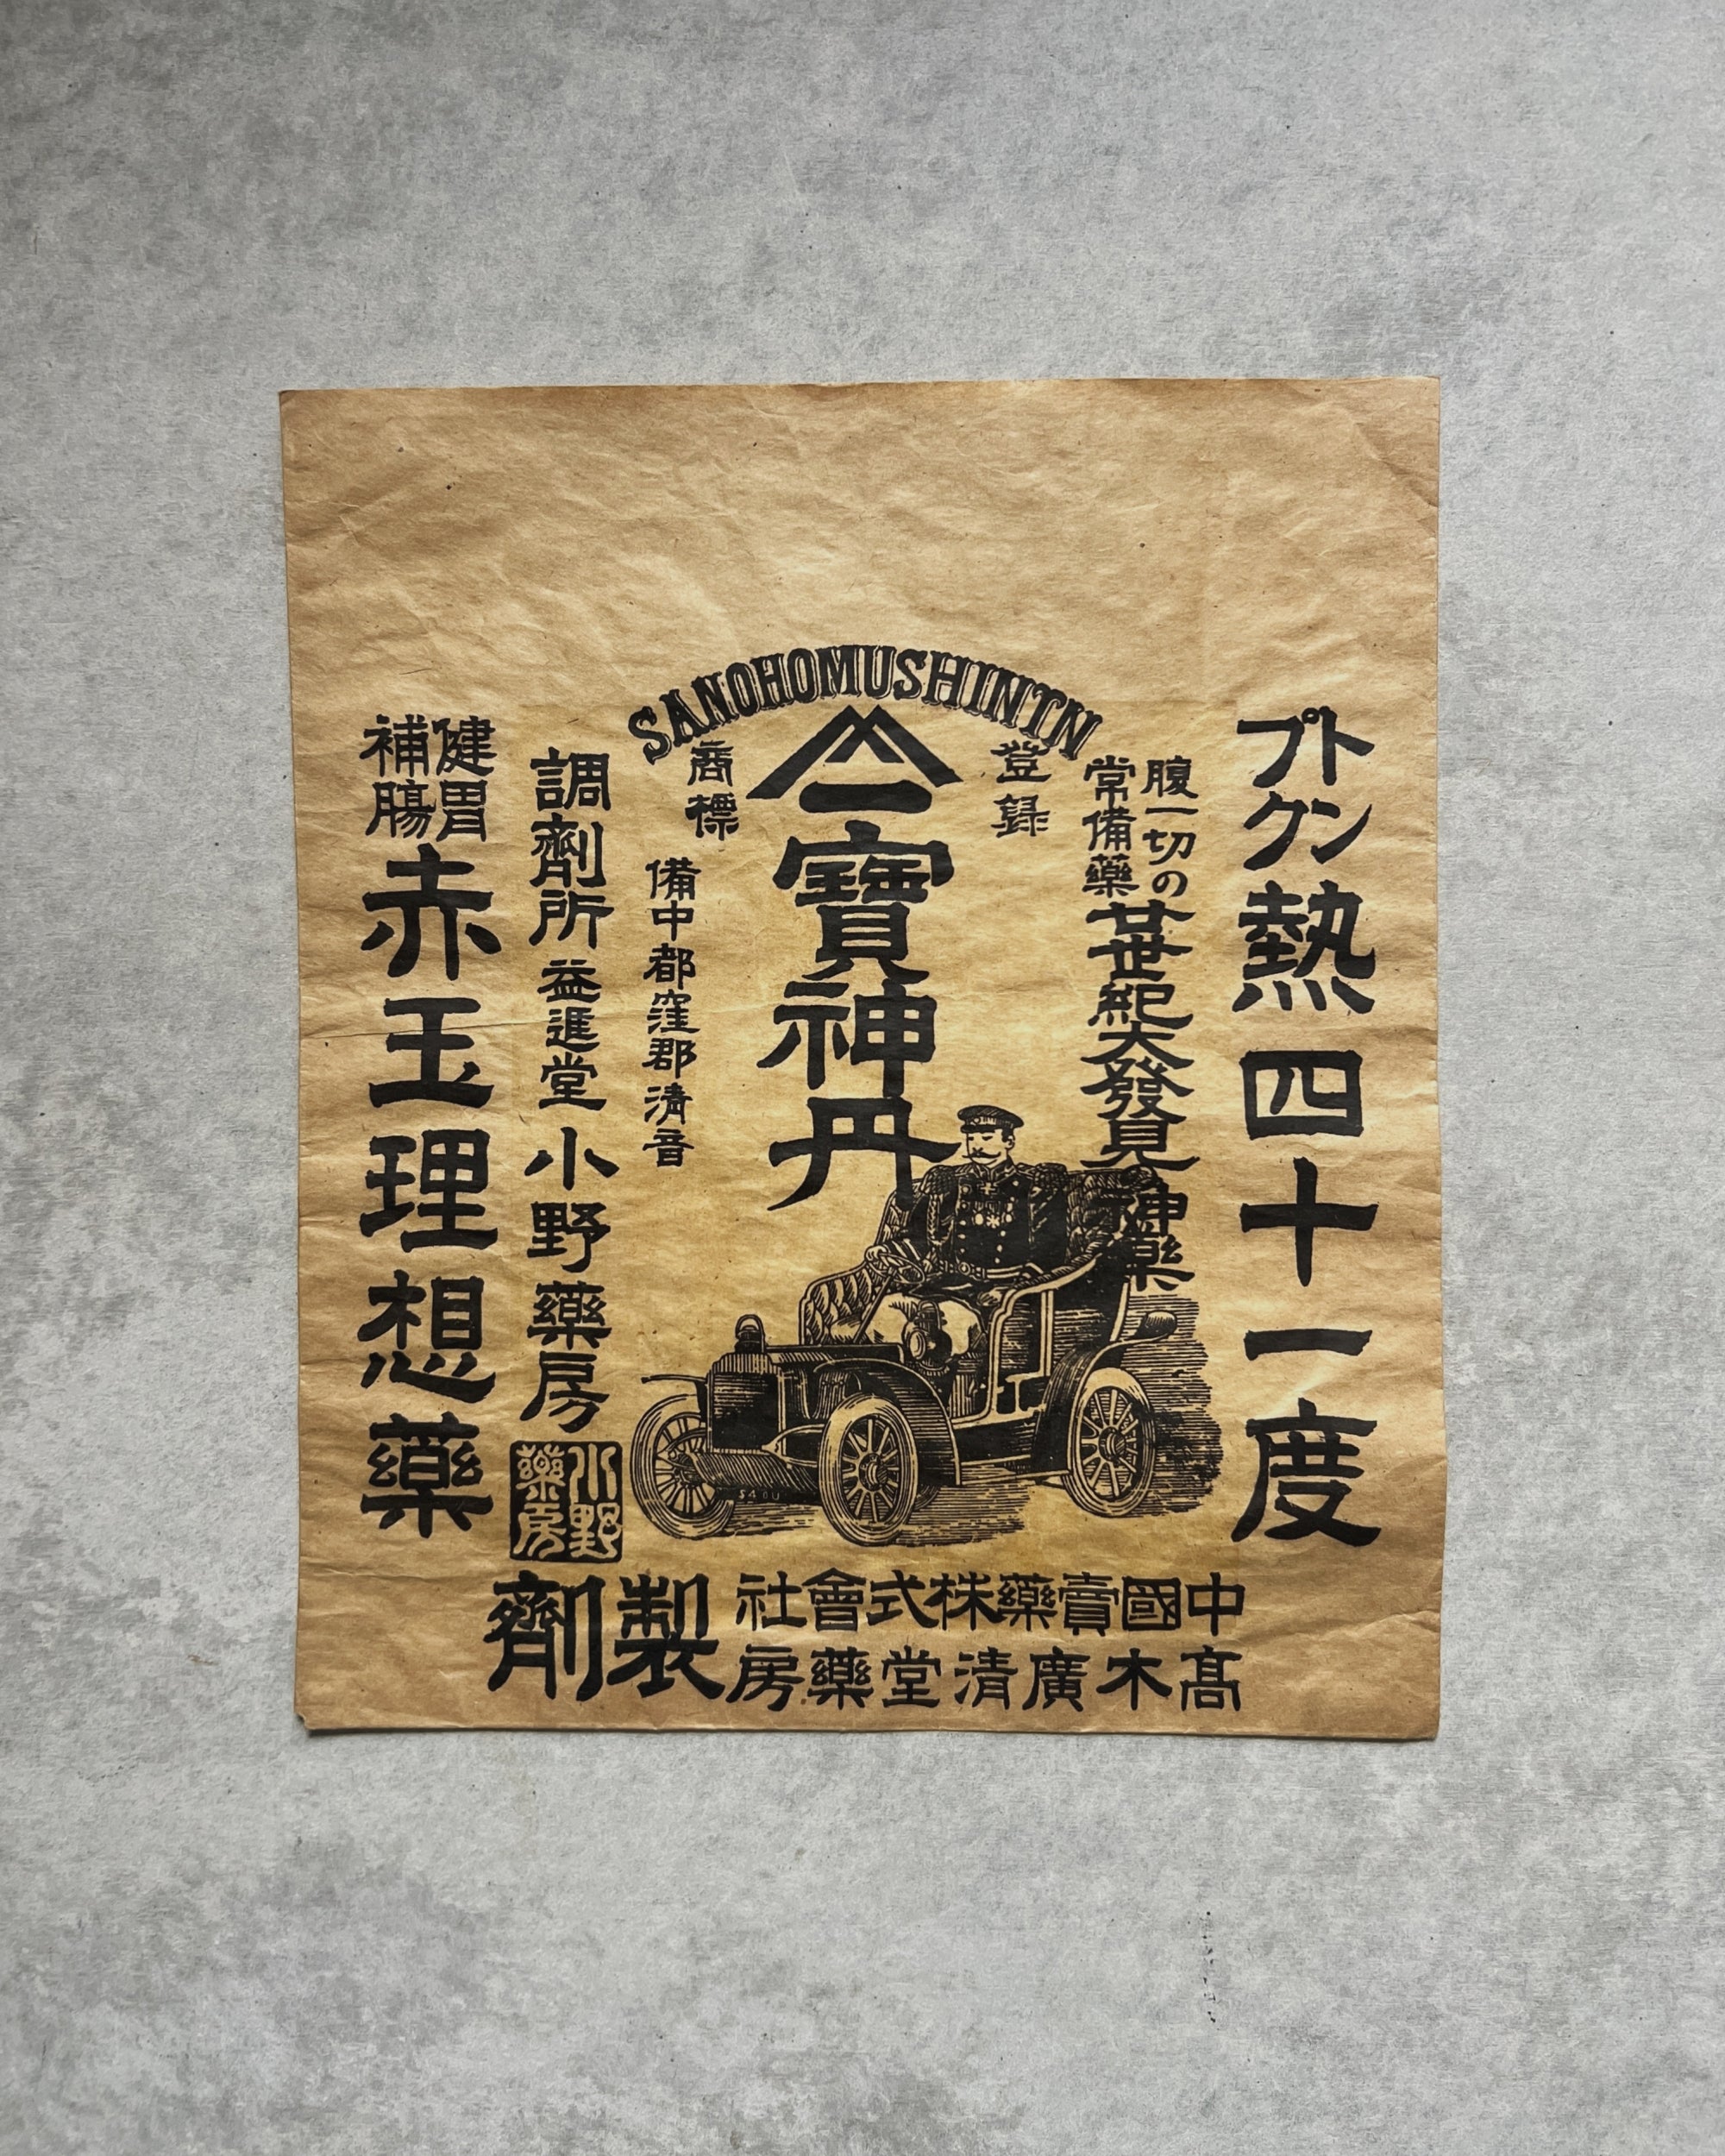 SANOHOMUSHINTN
プトクン熱四十一度
腹一切の
常備藥
廿世紀大發見神藥
登録
寶神丹
商標
備中都窪郡清音
調劑所益進堂小野藥房
小野藥房
健胃
補腸
赤玉理想藥
中國賣藥株式會社
髙木廣清堂藥房
製劑